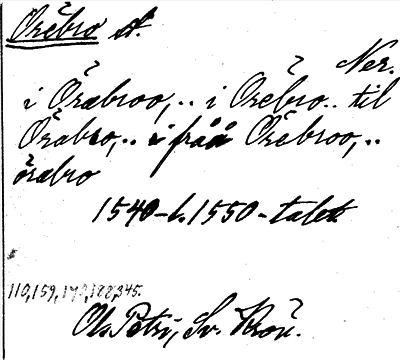 Örebro st
Ner.
i Öræbroo,.. i Orebro.. til
Öræbro,.. i från Örebroo,..
öræbro
1540-t. 1550-talet
110, 159, 170, 188, 345.
Ol. Petri, Sv. Krön.